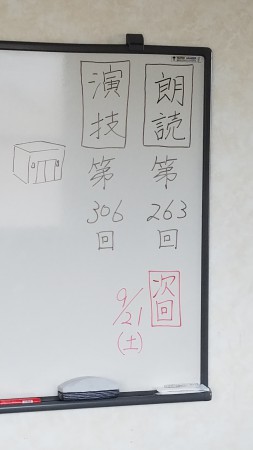 朗読
第
263
回
演技
第
306
回
次回
9/21
(土)